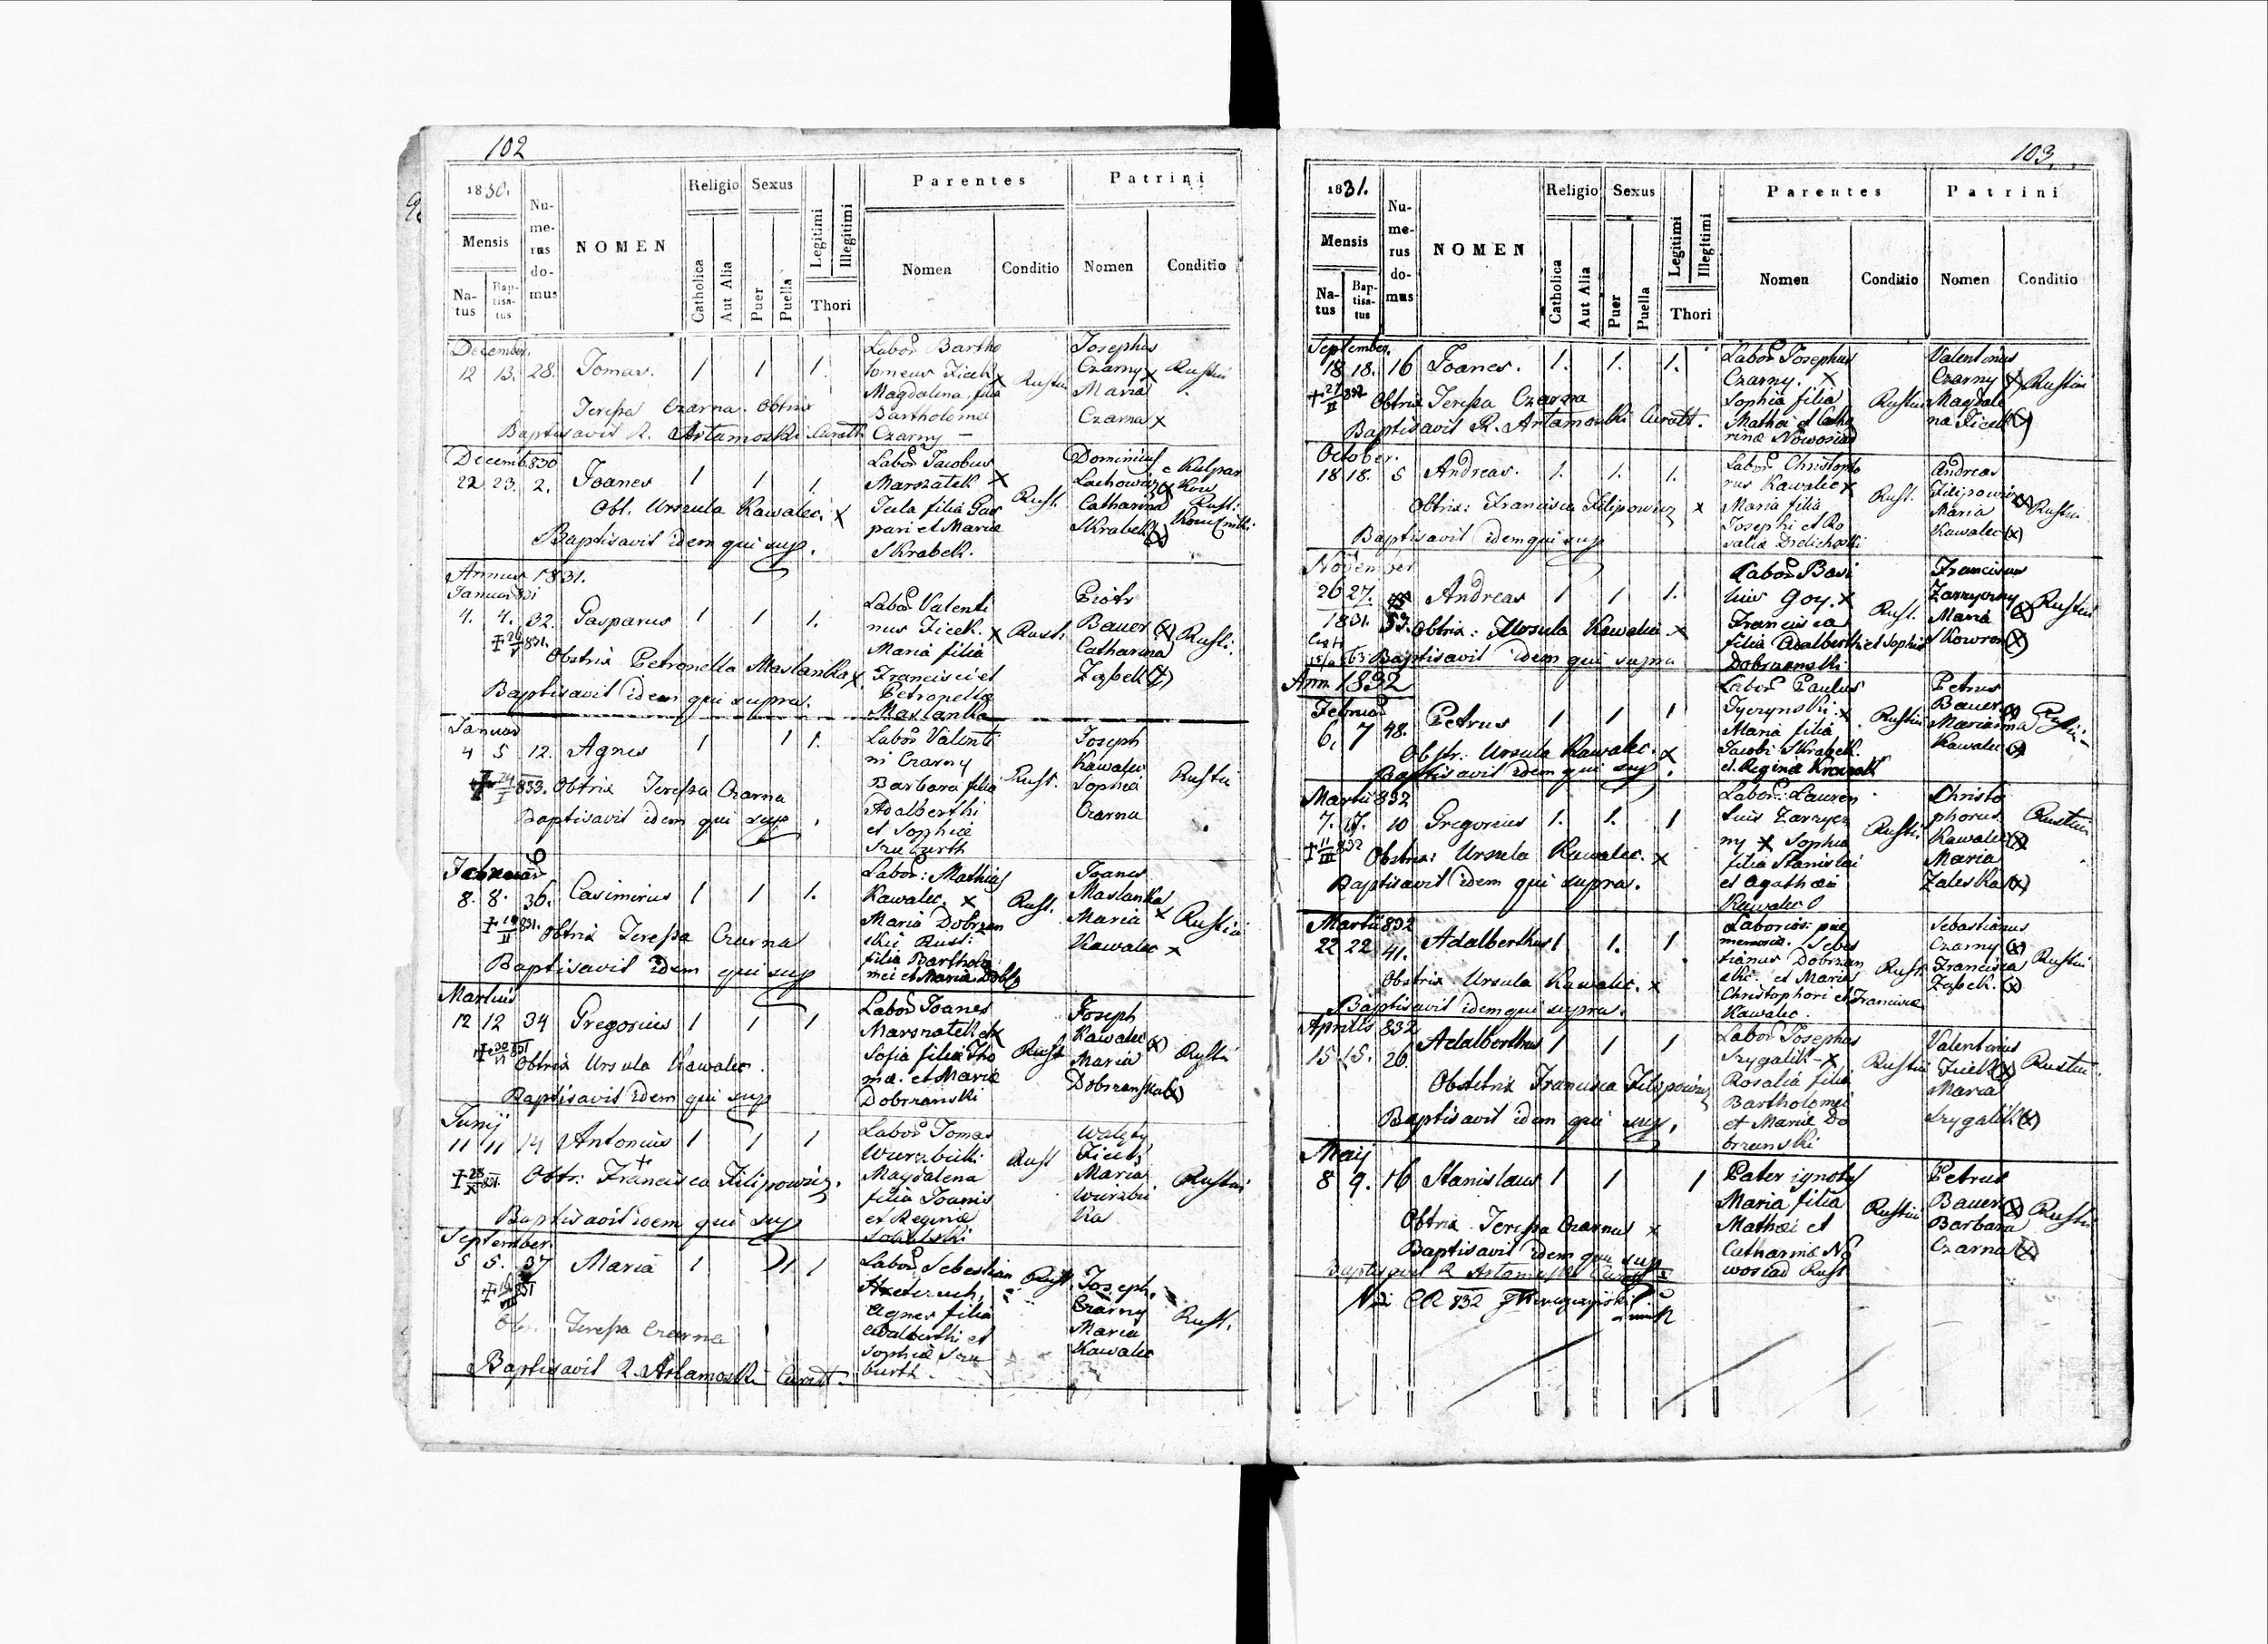 102
1830.
Mensis
Na-
tus
Bap-
tisa-
tus
Nu-
me-
rus
do-
mus
NOMEN
Religio
Catholica
Aut Alia
Sexus
Puer
Puella
Legitimi
Illegitimi
Thori
Parentes
Nomen
Conditio
Patrini
Nomen
Conditio
December.
12 13. 28. Tomas. 1 1 1.
Teressa Czarna Obtrix
Baptisavit R. Artamoski Curatt.
Labor Bartho
lomeus Ficek x
Magdalena filia
Bartholomei
Czarny
Rustici
Josephus
Czarny x
Maria
Czarna x
Rustici
Decemb 830
22 23. 2. Joanes 1 1 1.
Obt. Urszula Kawalec. x
Baptisavit idem qui sup.
Labor Jacobus
Marszałek x
Tecla filia Gas
pari et Mariæ
Skrabek.
Rust.
Dominius
Lachowicz
Catharina
Skrabek (x)
Rust:
Annus 1831.
Januari
4. 4. 32. Gasparus 1 1 1.
Obstrix Petronella Maslanka x
Baptisavit idem qui supra.
Labor Valenti
nus Ficek. x
Maria filia
Francisci et
Petronella
Maslanka
Rust:
Piotr
Bauer (x)
Catharina
Ząbek (x)
Rusti.
Januar
4 5 12. Agnes 1 1 1.
833. Obtrix Teressa Czarna
Baptisavit idem qui sup
Labor Valenti
ni Czarny
Barbara filia
Adalberthi
et Sophiæ
Szuburth
Rust.
Joseph
Kawalec
Sophia
Czarna
Rustici
Februar
8. 8. 36. Casimirus 1 1 1.
831. Obtrix Teressa Czarna
Baptisavit idem qui sup
Labor: Mathias
Kawalec. x
Maria Dobrzan
ski Rust:
filia Bartholo
mei et Maria Dobr
Rust.
Joanes
Maslanka
Maria x
Kawalec x
Rustici
Martius
12 12 34 Gregorius 1 1 1
Obtrix Ursula Kawalec.
Baptisavit idem qui sup
Labor Joanes
Marszałek x
Sofia filia Tho
mæ et Mariæ
Dobrzanski
Rust
Joseph
Kawalec (x)
Maria
Dobrzanska (x)
Rustici
Junij
11 11 14 Antonius 1 1 1
Obtr: Francisca Filipowicz.
Baptisavit idem qui sup
Labor Tomas
Wurzbicki
Magdalena
filia Joanis
et Reginæ
Sokulski
Rust
Walęty
Ficek
Maria
Wurzbic
ka
Rustici
September.
5 5. 37 Maria 1 1 1
Teressa Czarna
Baptisavit R. Artamoski Curatt.
Labor Sebestian
Agnes filia
Adalberthi et
Sophiæ Szu
burth.
Rust.
Joseph
Czarny
Maria
Kawalec
Rust.
103.
1831.
Mensis
Na-
tus
Bap-
tisa-
tus
Nu-
me-
rus
do-
mus
NOMEN
Religio
Catholica
Aut Alia
Sexus
Puer
Puella
Legitimi
Illegitimi
Thori
Parentes
Nomen
Conditio
Patrini
Nomen
Conditio
September.
18 18. 16 Joanes. 1. 1. 1.
Obtrix Teressa Czarna
Baptisavit R. Artamoski Curatt.
Labor Josephus
Czarny. x
Sophia filia
Mathei et Catha
rinæ Nowosiad
Rustici
Valentinus
Czarny (x)
Magdale
na Ficek (x)
Rustici
October.
18 18. 5 Andreas. 1. 1. 1.
Obtrix: Francisca Filipowicz x
Baptisavit idem qui sup
Labor Christopho
rus Kawalec x
Maria filia
Josephi et Ro
saliæ Dzielichoski
Rust.
Andreas
Filipowicz (x)
Maria
Kawalec (x)
Rustici
November
26 27. Andreas 1 1 1.
1831. 53. Obtrix: Ursula Kawalec x
Baptisavit idem qui supra
Labor Basi
lius Goy. x
Francisca
filia Adalberthi et Sophiæ
Dobrzanski
Rust.
Franciscus
Zarzyczny
Maria (x)
Skowron (x)
Rustici
Ann 1832
Februar
6, 7 48. Petrus 1 1 1
Obstr: Ursula Kawalec. x
Baptisavit idem qui sup.
Labor Paulus
Tyczynski. x
Maria filia
Jacobi Skrabek.
et Reginæ
Rustici
Petrus
Bauer (x)
Marianna
Kawalec (x)
Martii 832
7. 17. 10 Gregorius 1. 1. 1
Obstrix: Ursula Kawalec. x
Baptisavit idem qui supra.
Labor: Lauren
tius Zarzycz
ny x Sophia
filia Stanislai
et Agathæ
Kawalec
Rustici
Christo
phorus
Kawalec (x)
Maria
Zaleska (x)
Rustici
Martii 832
22 22 41. Adalberthus 1 1. 1
Obstrix Ursula Kawalec. x
Baptisavit idem qui supra.
Laborios: piæ
memoriæ. Sebes
tianus Dobrzan
ski et Maria
Christophori et Franciscæ
Kawalec.
Rust.
Sebastianus
Czarny (x)
Francisca
Ząbek. (x)
Rustici
Aprilis 832
15 15. 26. Adalberthus 1 1 1
Obstetrix Francisca Filipowicz
Baptisavit idem qui sup.
Labor Josephus
Szygalik x
Rosalia filia
Bartholomei
et Mariæ Do
brzanski
Rustici
Valentinus
Ficek (x)
Maria
Szygalik (x)
Rustici.
Maij
8 9. 16 Stanislaus 1 1 1
Obtrix Teressa Czarna x
Baptisavit idem qui sup
Baptisavit R Artamoski
Pater ignotus
Maria filia
Mathæi et
Catharinæ No
wosiad Rust
Rustici
Petrus
Bauer (x)
Barbara
Czarna (x)
Rustici